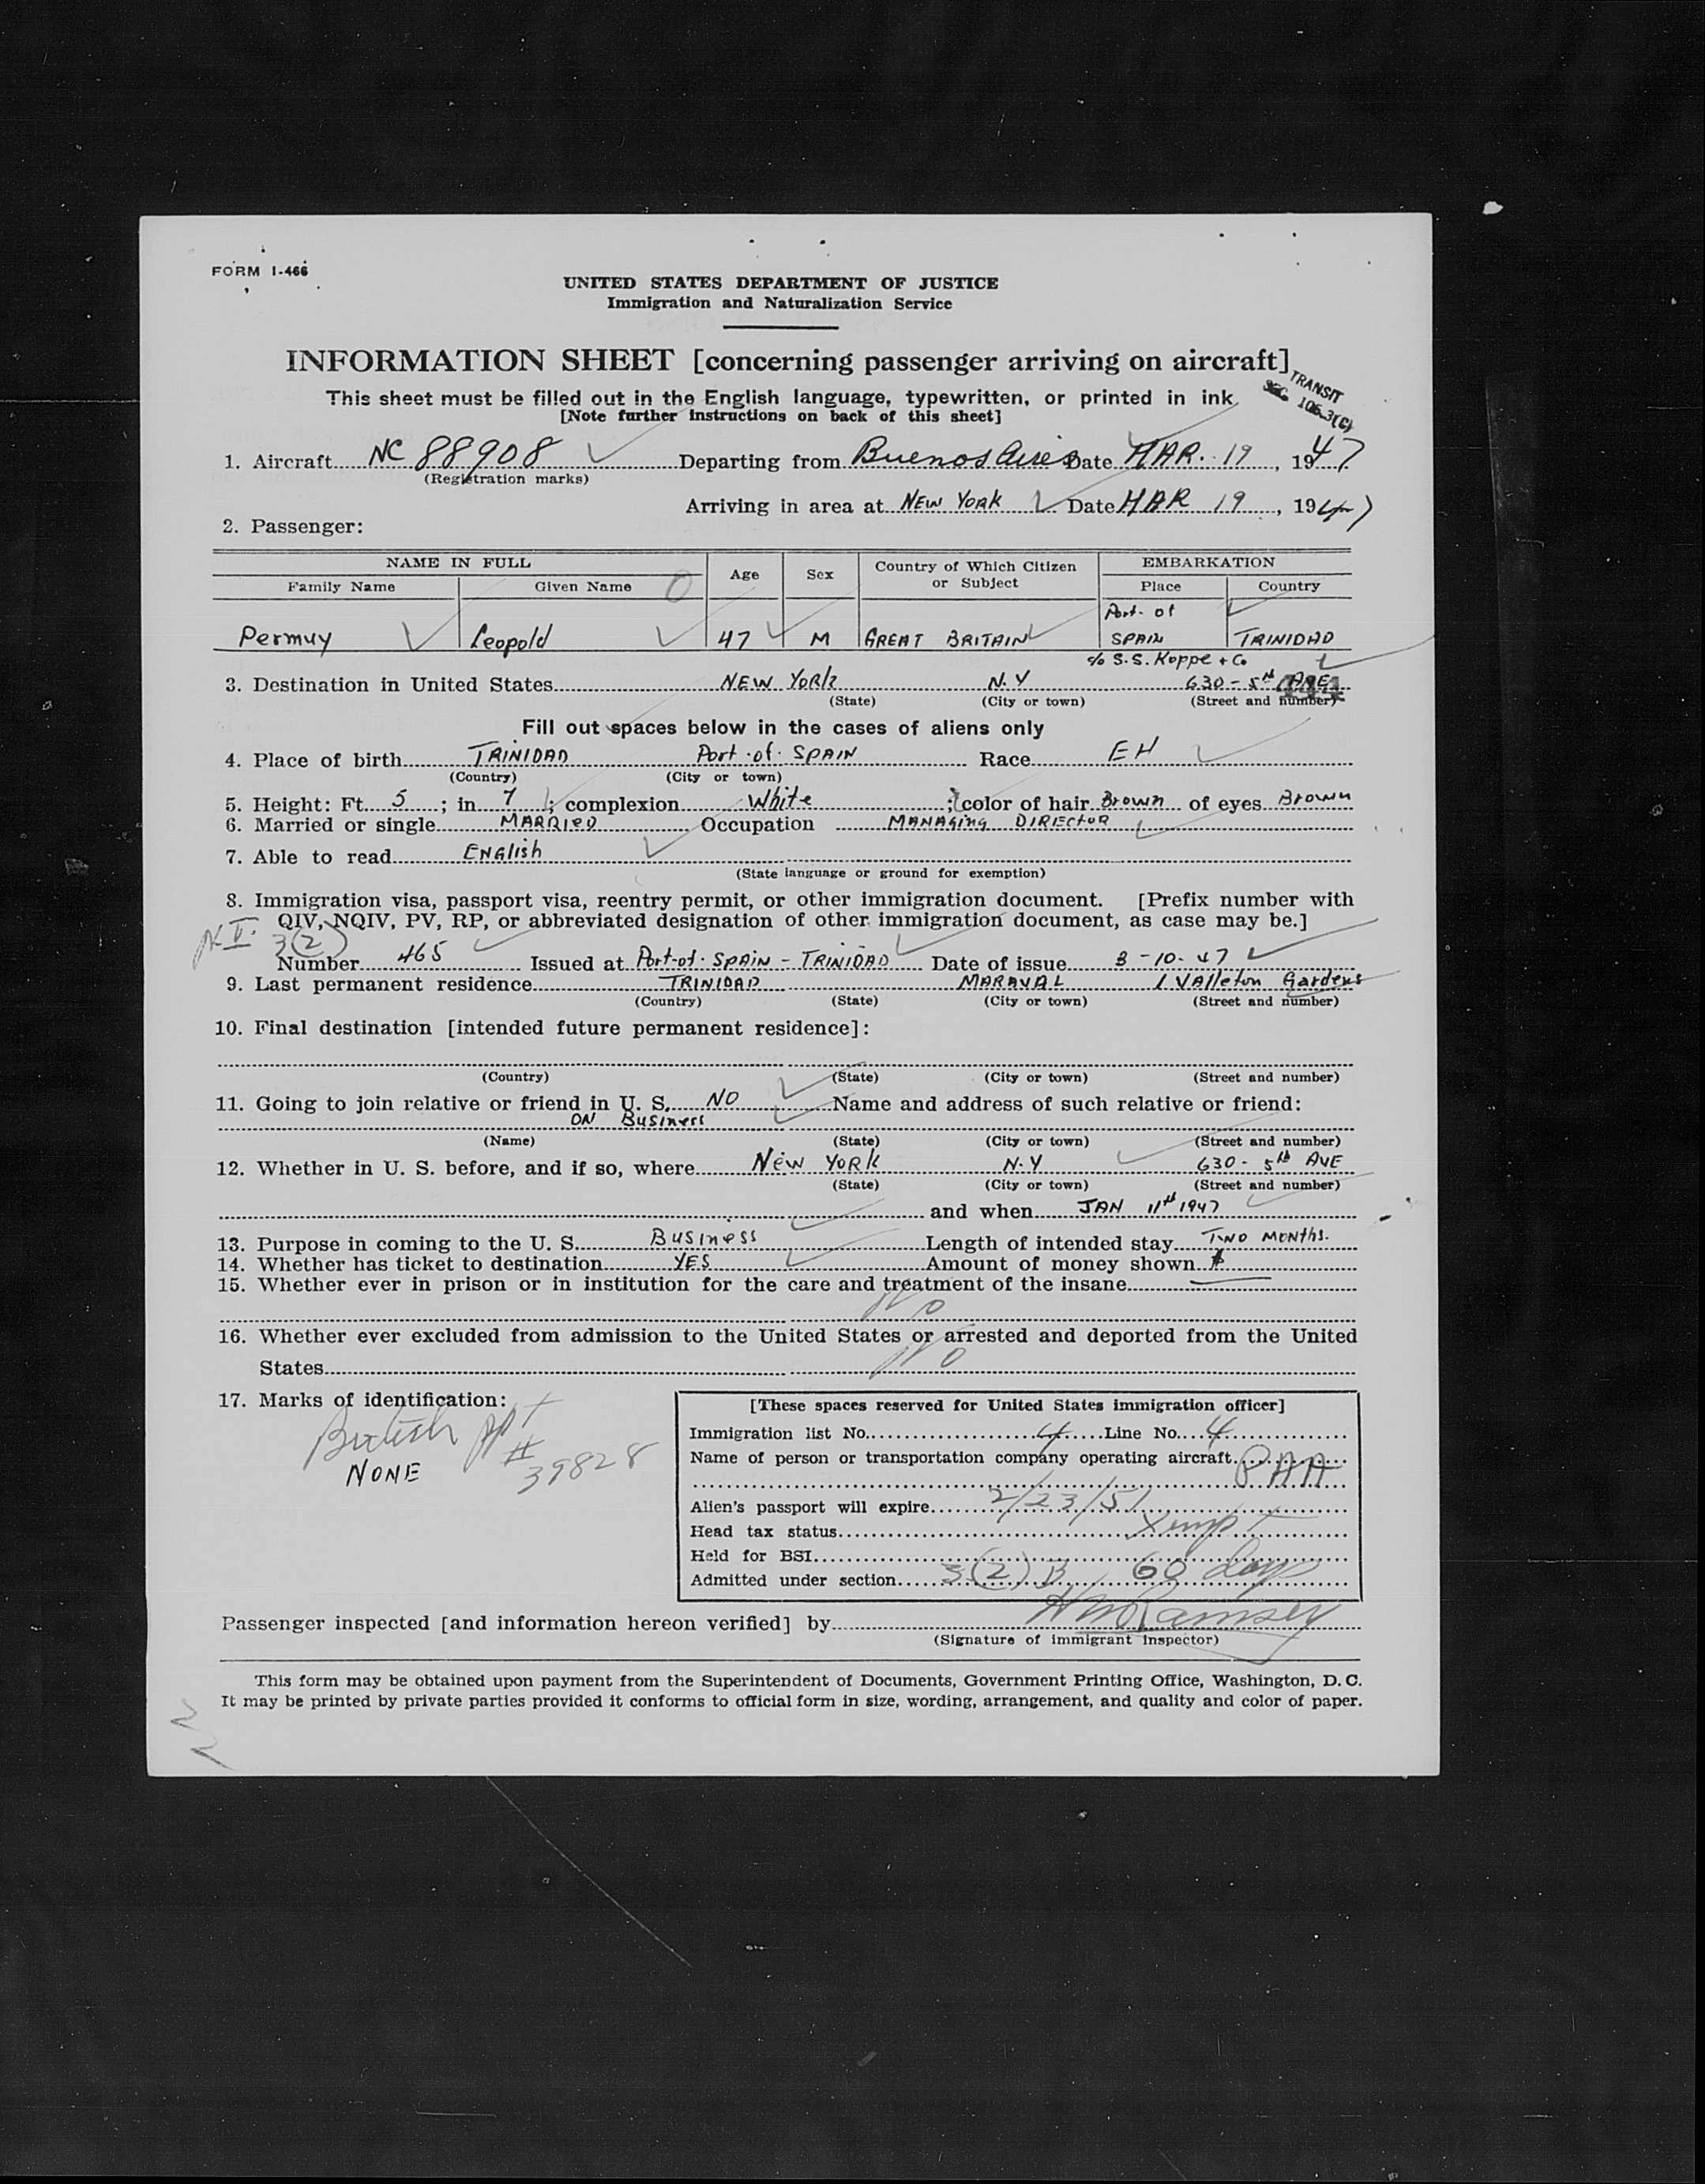 FORM I-466
UNITED STATES DEPARTMENT OF JUSTICE
Immigration and Naturalization Service
INFORMATION SHEET [concerning passenger arriving on aircraft]
TRANSIT
SEC. 105.3(C)
This sheet must be filled out in the English language, typewritten, or printed in ink
[Note further instructions on back of this sheet]
1. Aircraft NC 88908 Departing from Buenos Aires Date MAR. 19, 1947
(Registration marks)
Arriving in area at NEW YORK Date MAR 19, 1947
2. Passenger:
NAME IN FULL Age Sex Country of Which Citizen or Subject EMBARKATION
Family Name Given Name Place Country
Permuy Leopold 47 M GREAT BRITAIN Port of SPAIN TRINIDAD
c/o S.S. Koppe + Co
3. Destination in United States NEW YORK N.Y 630 - 5th AVE
444
(State) (City or town) (Street and number)
Fill out spaces below in the cases of aliens only
4. Place of birth TRINIDAD Port of SPAIN Race EH
(Country) (City or town)
5. Height: Ft. 5; in 7; complexion White; color of hair Brown of eyes Brown
6. Married or single MARRIED Occupation MANAGING DIRECTOR
7. Able to read ENGlish
(State language or ground for exemption)
8. Immigration visa, passport visa, reentry permit, or other immigration document. [Prefix number with
QIV, NQIV, PV, RP, or abbreviated designation of other immigration document, as case may be.]
3(2)
Number 465 Issued at Port-of-SPAIN - TRINIDAD Date of issue 3-10-47
9. Last permanent residence TRINIDAD MARAVAL 1 Valleton Gardens
(Country) (State) (City or town) (Street and number)
10. Final destination [intended future permanent residence]:
(Country) (State) (City or town) (Street and number)
11. Going to join relative or friend in U. S. NO Name and address of such relative or friend:
ON Business
(Name) (State) (City or town) (Street and number)
12. Whether in U. S. before, and if so, where New YORK N.Y 630 - 5th AVE
(State) (City or town) (Street and number)
and when JAN 11th 1947
13. Purpose in coming to the U. S. Business Length of intended stay TWO MONths.
14. Whether has ticket to destination YES Amount of money shown $
15. Whether ever in prison or in institution for the care and treatment of the insane
No
16. Whether ever excluded from admission to the United States or arrested and deported from the United
States No
17. Marks of identification:
British ppt
# 39828
NONE
[These spaces reserved for United States immigration officer]
Immigration list No. 4 Line No. 4
Name of person or transportation company operating aircraft PAA
Alien's passport will expire 2/23/51
Head tax status Xmpt
Held for BSI
Admitted under section 3(2) B 60 days
Passenger inspected [and information hereon verified] by Ramsey
(Signature of immigrant inspector)
This form may be obtained upon payment from the Superintendent of Documents, Government Printing Office, Washington, D. C.
It may be printed by private parties provided it conforms to official form in size, wording, arrangement, and quality and color of paper.